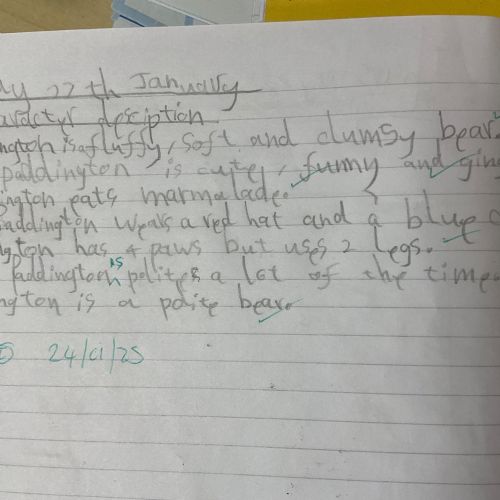 22th January
desciption
isafluffy, soft and clumsy bear.
paddington is cute, funny and
eats marmalade.
addington wears a red hat and a blue
ngton has 4 paws but uses 2 legs.
addington is polite a lot of the time
ngton is a polite bear.
24/01/25